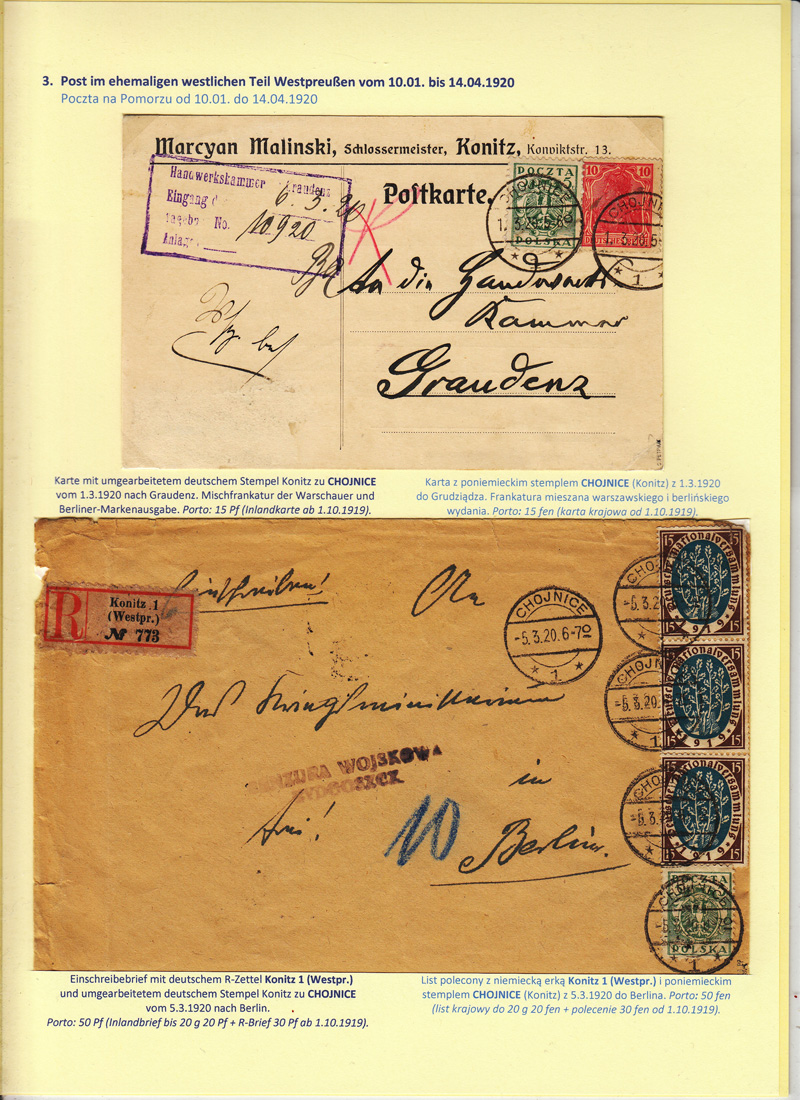 3. Post im ehemaligen westlichen Teil Westpreußen vom 10.01. bis 14.04.1920
Poczta na Pomorzu od 10.01. do 14.04.1920
Marcyan Malinski, Schlossermeister, Konitz, Konviktstr. 13.
Handwerkskammer Graudenz
Eingang 6. 3. 20
Tagebu No. 10920
Anlage
Postkarte.
POCZTA
POLSKA
10 10
CHOJNICE
1
CHOJNI
1
An die
Kammer
Graudenz
Karte mit umgearbeitetem deutschem Stempel Konitz zu CHOJNICE
vom 1.3.1920 nach Graudenz. Mischfrankatur der Warschauer und
Berliner-Markenausgabe. Porto: 15 Pf (Inlandkarte ab 1.10.1919).
Karta z poniemieckim stemplem CHOJNICE (Konitz) z 1.3.1920
do Grudziądza. Frankatura mieszana warszawskiego i berlińskiego
wydania. Porto: 15 fen (karta krajowa od 1.10.1919).
R
Konitz 1
(Westpr.)
№ 773
Einschreiben!
An
CHOJNICE
-5.3.20.6-7N
1
CHOJN
-5.3.20
15 15
Deutsche Nationalversammlung
15 1919 15
CHOJNI
-5.3.20.
1
15 15
Deutsche Nationalversammlung
15 1919 15
CHO
-5.3.
15 15
Deutsche Nationalversammlung
15 1919 15
Das Kriegsministerium
CENZURA WOJSKOWA
BYDGOSZCZ
in
frei!
10
Berlin.
POCZTA
CHOJNICE
POLSKA
1
Einschreibebrief mit deutschem R-Zettel Konitz 1 (Westpr.)
und umgearbeitetem deutschem Stempel Konitz zu CHOJNICE
vom 5.3.1920 nach Berlin.
Porto: 50 Pf (Inlandbrief bis 20 g 20 Pf + R-Brief 30 Pf ab 1.10.1919).
List polecony z niemiecką erką Konitz 1 (Westpr.) i poniemieckim
stemplem CHOJNICE (Konitz) z 5.3.1920 do Berlina. Porto: 50 fen
(list krajowy do 20 g 20 fen + polecenie 30 fen od 1.10.1919).